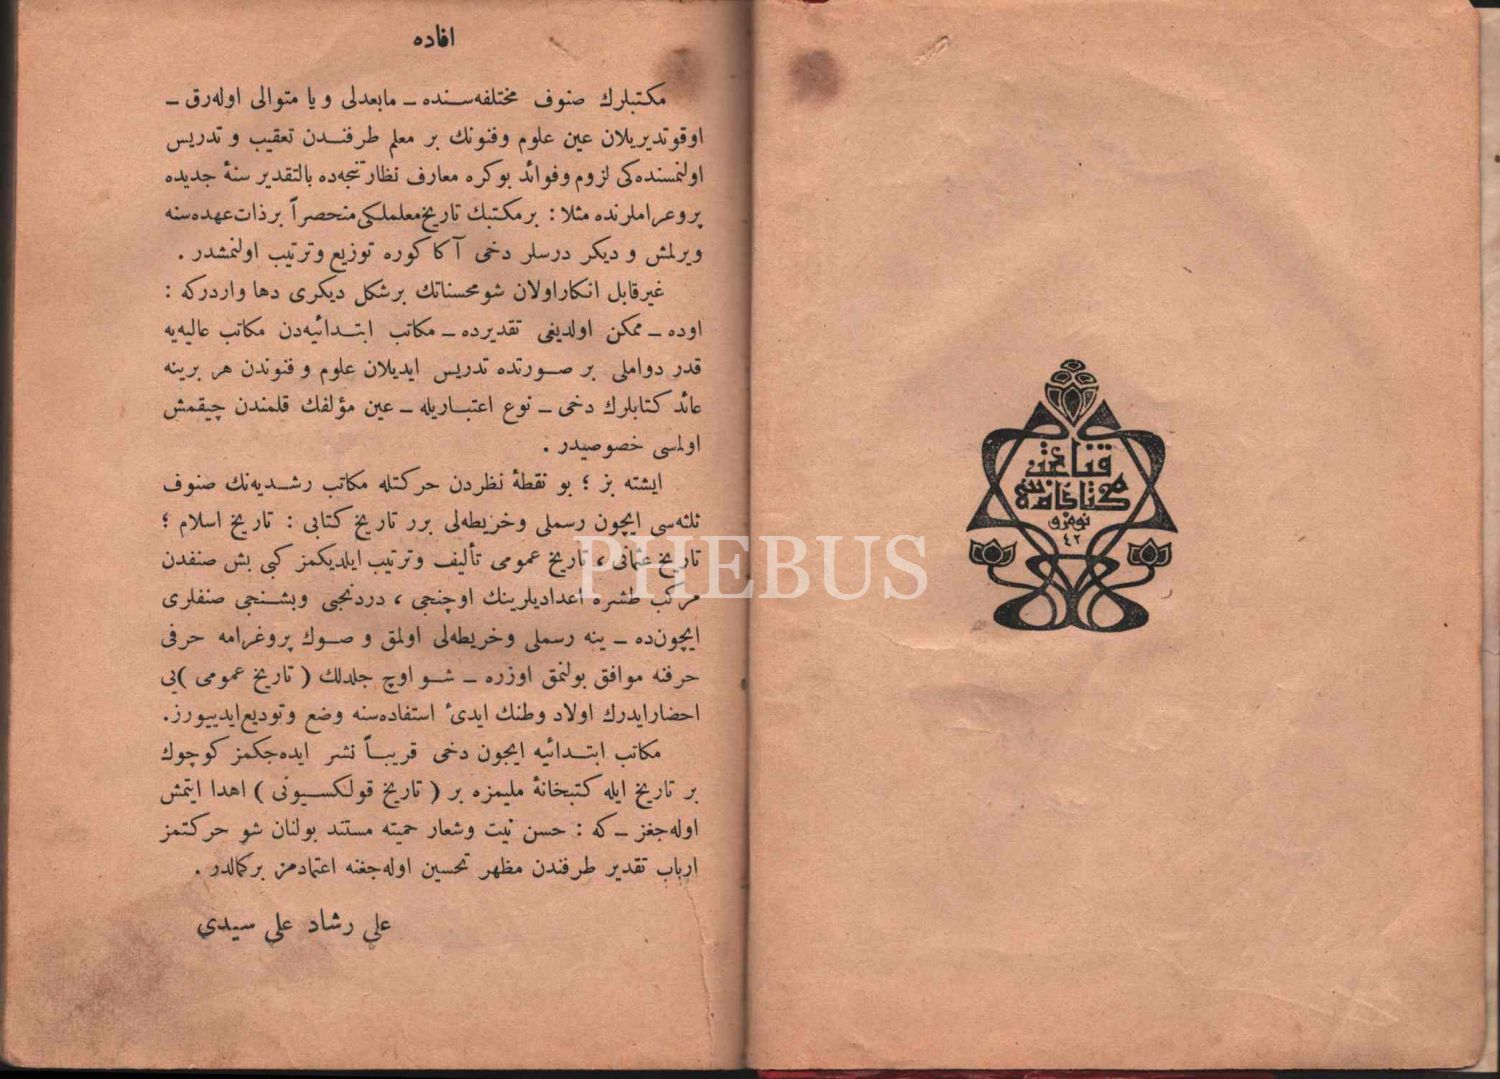 قناعت
كتابخانه سی
نومرو
٤٢
افاده
مكتبلرك صنوف مختلفه‌سنده ـ مابعدلی و یا متوالی اوله‌رق ـ
اوقوتدیریلان عین علوم وفنونك بر معلم طرفندن تعقیب و تدریس
اولنمسنده‌كی لزوم وفوائد بوكره معارف نظارتنجه‌ده بالتقدیر سنۀ جدیده
پروغراملرنده مثلا : بر مكتبك تاریخ معلملكی منحصراً بر ذات عهده‌سنه
ویرلمش و دیكر درسلر دخی آكا كوره توزیع وترتیب اولنمشدر .
غیرقابل انكار اولان شو محسناتك بر شكل دیكری دها واردركه :
اوده ـ ممكن اولدیغی تقدیرده ـ مكاتب ابتدائیه‌دن مكاتب عالیه‌یه
قدر دواملی بر صورتده تدریس ایدیلان علوم و فنوندن هر برینه
عائد كتابلرك دخی ـ نوع اعتباریله ـ عین مؤلفك قلمندن چیقمش
اولمسی خصوصیدر .
ایشته بز ؛ بو نقطۀ نظردن حركتله مكاتب رشدیه‌نك صنوف
ثلثه‌سی ایچون رسملی وخریطه‌لی برر تاریخ كتابی : تاریخ اسلام ؛
تاریخ عثمانی ، تاریخ عمومی تألیف وترتیب ایلدیكمز كبی بش صنفدن
مركب طشره اعدادیلرینك اوچنجی ، دردنجی وبشنجی صنفلری
ایچون‌ده ـ ینه رسملی وخریطه‌لی اولمق و صوك پروغرامه حرفی
حرفنه موافق بولنمق اوزره ـ شو اوچ جلدلك ( تاریخ عمومی ) یی
احضار ایدرك اولاد وطنك ایدیٔ استفاده‌سنه وضع وتودیع ایدییورز.
مكاتب ابتدائیه ایچون دخی قریباً نشر ایده‌جكمز كوچوك
بر تاریخ ایله كتبخانۀ ملیمزه بر ( تاریخ قولكسیونی ) اهدا ایتمش
اوله‌جغز ـ كه : حسن نیت وشعار حمیته مستند بولنان شو حركتمز
ارباب تقدیر طرفندن مظهر تحسین اوله‌جغنه اعتمادمز بركمالدر .
علی رشاد علی سیدی
PHEBUS